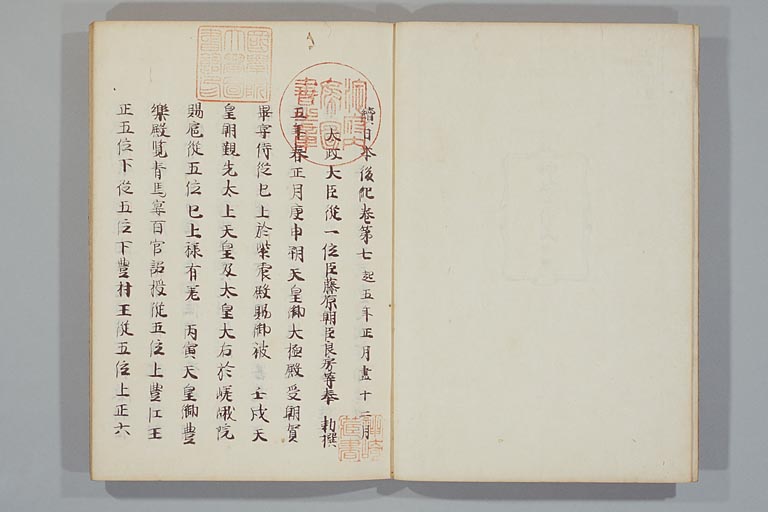 續日本後紀卷第七 起五年正月盡十二月
太政大臣從一位臣藤原朝臣良房等奉 勅撰
五年春正月庚申朔天皇御大極殿受朝賀
畢宴侍從已上於紫宸殿賜御被 壬戌天
皇朝觀先太上天皇及太皇大后於嵯峨院
賜扈從五位已上祿有差 丙寅天皇御豐
樂殿覽青馬宴百官詔授從五位上豐江王
正五位下從五位下豐村王從五位上正六